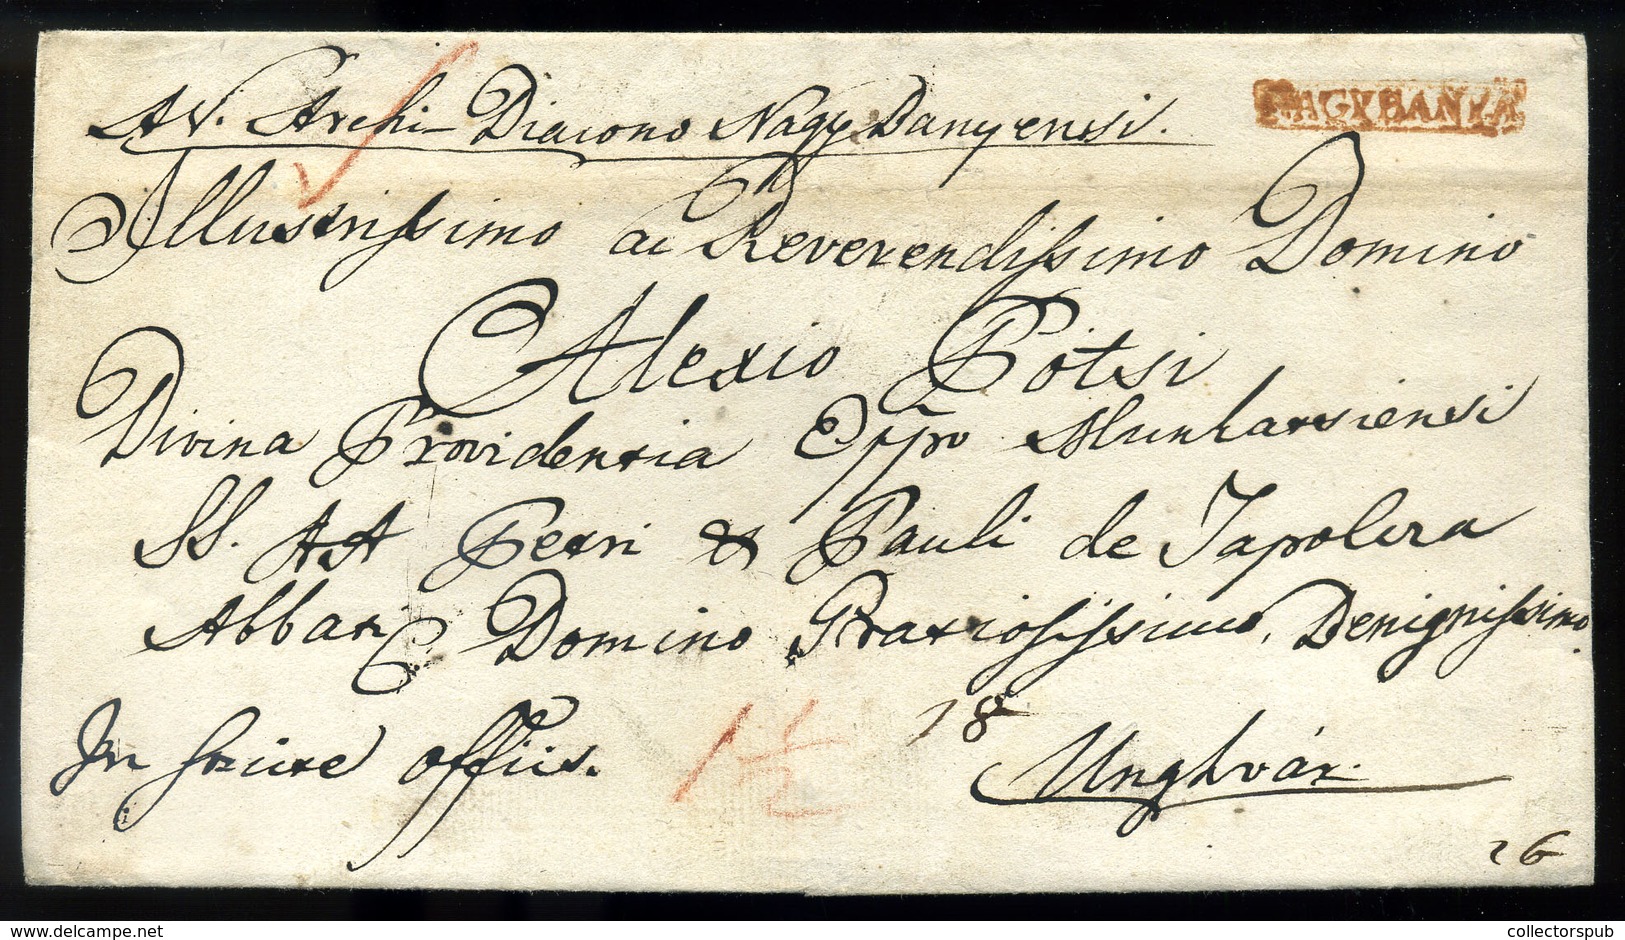 AV. Archi-Diacono Nagy Banyensi.
NAGYBANYA
Illustrissimo ac Reverendissimo Domino
Alexio Pótsi
Divina Providentia Eppo Munkatsiensi
SS. AA Petri & Pauli de Tapolcza
Abbati Domino Gratiosissimo, Benignissimo.
In sciuse officis.
1 1/2
18
Unghvár.
26
delcampe.net
collectorspub